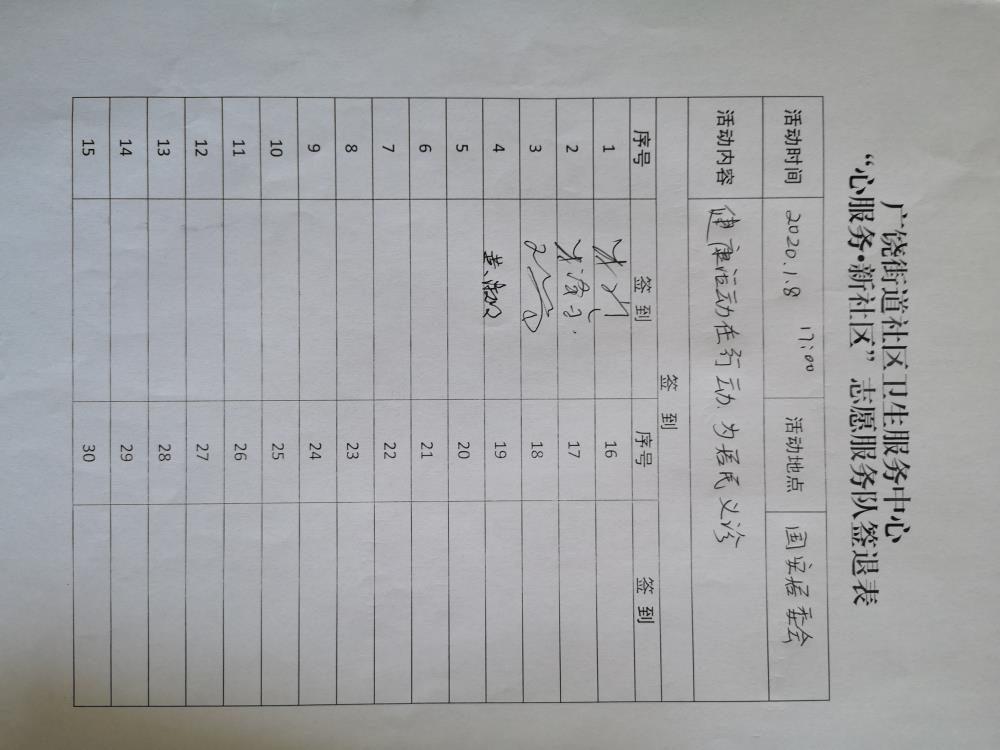 广饶街道社区卫生服务中心
“心服务•新社区”志愿服务队签退表
活动时间 2020.1.8 17:00 活动地点 国安居委会
活动内容 健康活动在行动 为居民义诊
签 到
序号 签 到 序号 签 到
1 16
2 17
3 18
4 19
5 20
6 21
7 22
8 23
9 24
10 25
11 26
12 27
13 28
14 29
15 30